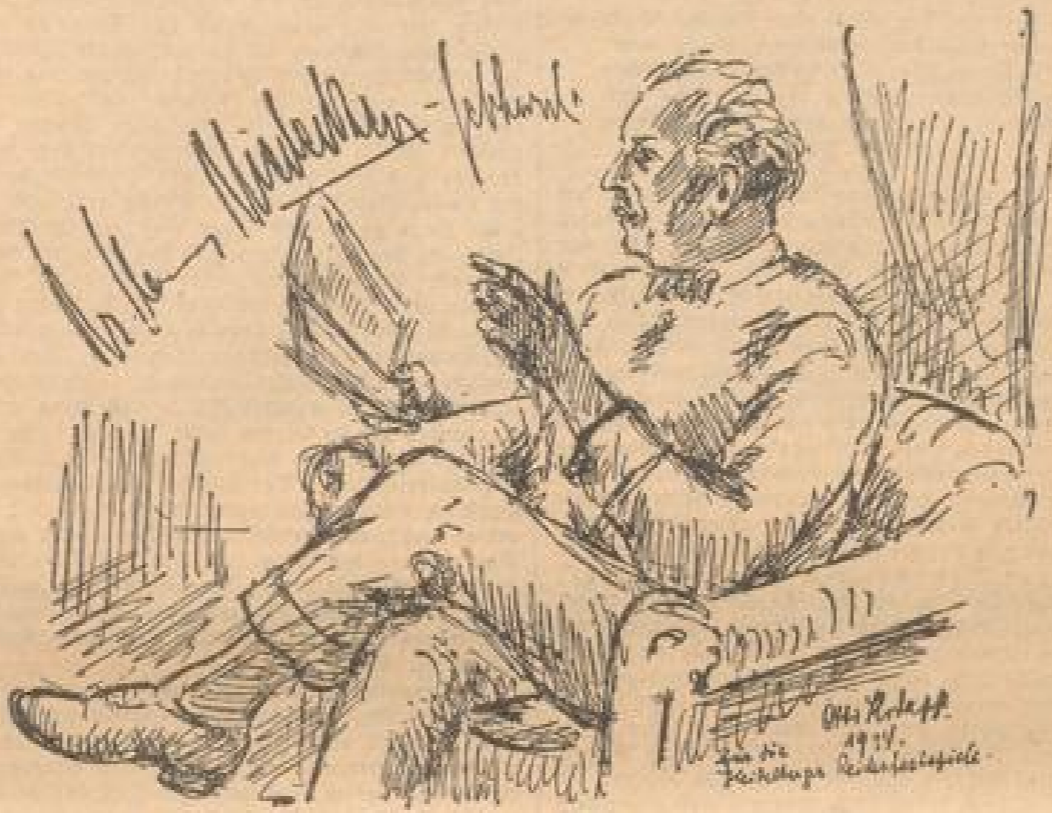 Dr. Hanns Niedecken-Gebhard.
Otto Hodapp.
1934.
Für die
Heidelberger Reichsfestspiele.